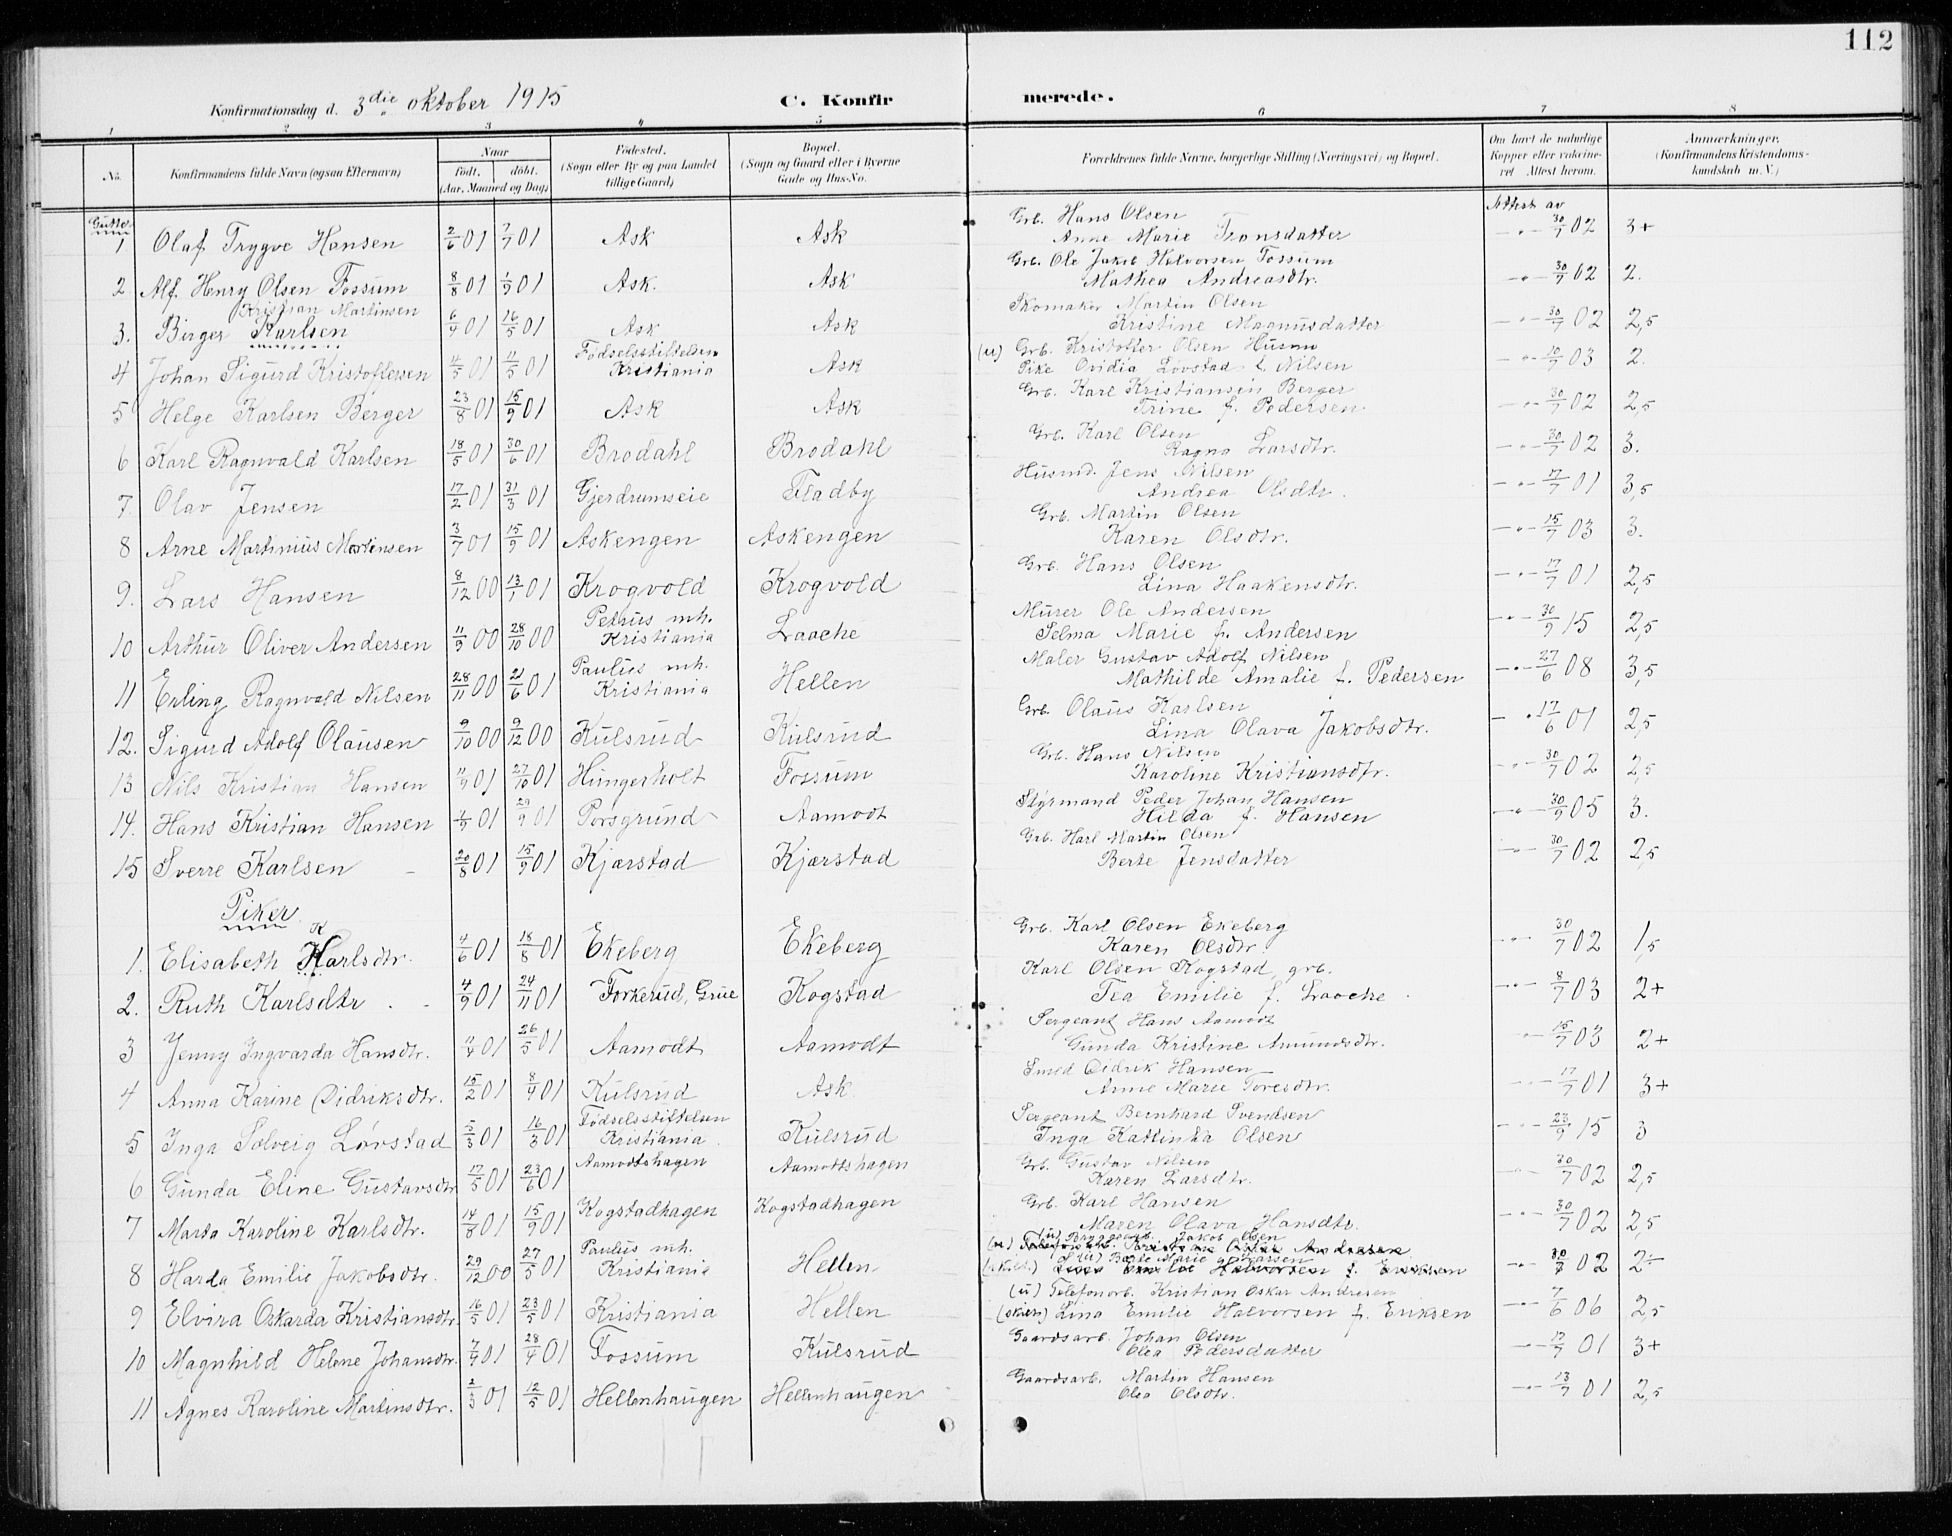 112
Konfirmationsdag d. 3die oktober 1915 C. Konfirmerede.
1 2 3 4 5 6 7 8
No. Konfirmandens fulde Navn (ogsaa Efternavn) Naar født. døbt. (Aar, Maaned og Dag) Fødested. (Sogn eller By og paa Landet tillige Gaard) Bopæl. (Sogn og Gaard eller i Byerne Gade og Hus-No. Forældrenes fulde Navne, borgerlige Stilling (Næringsvei) og Bopæl. Om havt de naturlige Kopper eller vaccineret. Attest herom. Anmærkninger. (Konfirmandens Kristendomskundskab m. V.)
Gutter Attest av
1 Olaf Trygve Hansen 2/6 01 7/7 01 Ask Ask Grb. Hans Olsen Anne Marie Tronsdatter -"- 30/7 02 3+
2 Alf. Henry Olsen Fossum 8/8 01 1/9 01 Ask. Ask Grb. Ole Jakob Halvorsen Fossum Mathea Andreasdtr. -"- 30/7 02 2.
Kristian Martinsen
3. Birger Karlsen 6/4 01 16/5 01 Ask Ask Skomaker Martin Olsen Kristine Magnusdatter -"- 30/7 02 2,5
4 Johan Sigurd Kristoffersen 4/5 01 11/5 01 Fødselsstiftelsen Kristiania Ask (u) Grb. Kristoffer Olsen Husum Pike Ovidia Løvstad f. Nilsen -"- 10/7 03 2.
5 Helge Karlsen Berger 23/8 01 15/9 01 Ask Ask Grb. Karl Kristiansen Berger Trine f. Pedersen. -"- 30/7 02 2,5
6 Karl Ragnvald Karlsen 18/5 01 30/6 01 Brodahl Brodahl Grb. Karl Olsen Ragna Larsdtr. -"- 30/7 02 3.
7. Olav Jensen 17/2 01 31/3 01 Gjerdrumseie Fladby Husmd. Jens Nilsen Andrea Olsdtr. -"- 17/7 01 3,5
8 Arne Martinius Martinsen 3/7 01 15/9 01 Askengen Askengen Grb. Martin Olsen Karen Olsdtr. -"- 15/7 03 3.
9. Lars Hansen 8/12 00 13/1 01 Krogvold Krogvold Grb. Hans Olsen Lina Haakensdtr. -"- 17/7 01 2,5
10 Arthur Oliver Andersen 11/9 00 28/10 00 Petrus mh. Kristiania Laache Murer Ole Andersen Selma Marie f. Andersen -"- 30/9 15 2,5
11 Erling Ragnvald Nilsen 28/11 00 21/6 01 Paulus mh. Kristiania Hellen Maler Gustav Adolf Nilsen Mathilde Amalie f. Pedersen -"- 27/6 08 3,5
12. Sigurd Adolf Olausen 9/10 00 9/12 00 Kulsrud Kulsrud Grb. Olaus Karlsen Lina Olava Jakobsdtr. -"- 17/6 01 2,5
13 Nils Kristian Hansen 11/9 01 27/10 01 Hungerholt Fossum Grb. Hans Nilsen Karoline Kristiansdtr. -"- 30/7 02 2,5
14. Hans Kristian Hansen 4/9 01 29/9 01 Porsgrund Aamodt Styrmand Peder Johan Hansen Hilda f. Hansen -"- 30/9 05 3.
15 Sverre Karlsen 20/8 01 15/9 01 Kjærstad Kjærstad Grb. Karl Martin Olsen Berte Jensdatter -"- 30/7 02 2,5
Piker
1. Elisabeth Karlsdtr. 4/6 01 18/8 01 Ekeberg Ekeberg Grb. Karl Olsen Ekeberg Karen Olsdtr. -"- 30/7 02 1,5
2. Ruth Karlsdtr 4/9 01 24/11 01 Forkerud, Grue Kogstad Karl Olsen Kogstad, grb. Tea Emilie f. Laache -"- 8/7 03 2+
3 Jenny Ingvarda Hansdtr. 11/4 01 26/5 01 Aamodt Aamodt Sergeant Hans Aamodt Gunda Kristine Amundsdtr. -"- 15/7 03 2+
4 Anna Karine Didriksdtr. 15/2 01 8/4 01 Kulsrud Ask. Smed Didrik Hansen Anne Marie Toresdtr. -"- 17/7 01 3+
5 Inga Solveig Løvstad 5/3 01 16/3 01 Fødselsstiftelsen Kristiania. Kulsrud Sergeant Bernhard Svendsen Inga Kattinka Olsen -"- 23/9 15 3
6 Gunda Eline Gustavsdtr 17/5 01 23/6 01 Aamodtshagen Aamottshagen Grb. Gustav Nilsen Karen Larsdtr. -"- 30/7 02 2,5
7 Marta Karoline Karlsdtr. 14/8 01 15/9 01 Kogstadhagen Kogstadhagen Grb. Karl Hansen Maren Olava Hansdtr. -"- 30/7 02 2,5
8 Harda Emilie Jakobsdtr. 29/12 00 27/5 01 Paulus mh. Kristiania Hellen (u) Bryggearb. Jakob Olsen (u) Berte Marie Larsen -"- 30/7 02 2÷
9 Elvira Oskarda Kristiansdtr. 16/5 01 23/5 01 Kristiania Hellen (u) Telefonarb. Kristian Oskar Andresen (skilt) Lina Emilie Halvorsen f. Eriksen -"- 7/6 06 2,5
10 Magnhild Helene Johansdtr. 7/4 01 28/4 01 Fossum Kulsrud Gaardsarb. Johan Olsen Olea Pedersdatter -"- 17/7 01 3+
11 Agnes Karoline Martinsdtr. 2/3 01 12/5 01 Hellenhaugen Hellenhaugen Gaardsarb. Martin Hansen Olea Olsdtr. -"- 13/7 01 2,5